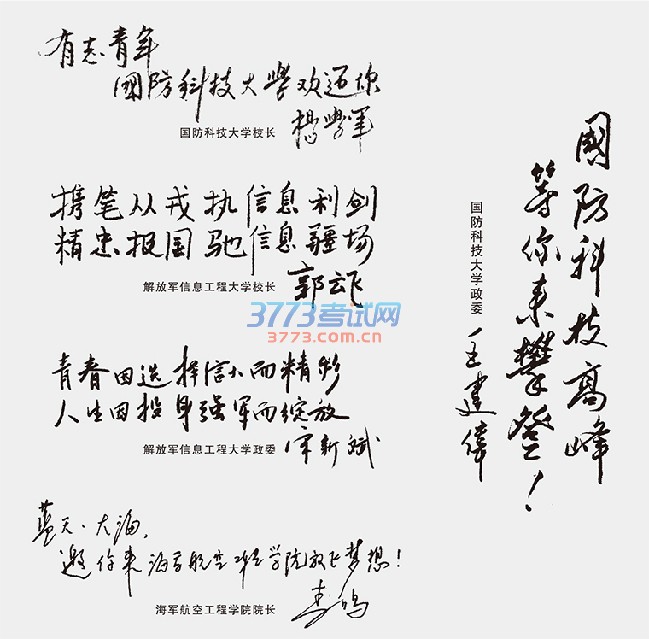 有志青年
國防科技大學欢迎你
国防科技大学校长
杨学军
携笔从戎执信息利剑
精忠报国驰信息疆场
解放军信息工程大学校长
郭云飞
3773考试网
3773.com.cn
青春因选择信大而精彩
人生因投身强军而绽放
解放军信息工程大学政委
宋新斌
蓝天·大海，
邀你来海军航空工程学院放飞梦想！
海军航空工程学院院长
李鸣
國防科技高峰
等你来攀登！
国防科技大学政委
王建伟